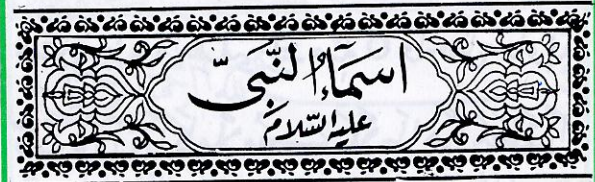 اسماءُ النَّبیِّ
علیہ السّلام